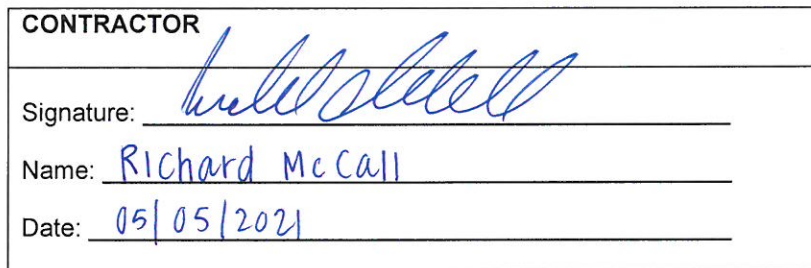 CONTRACTOR
Signature:
Name: Richard McCall
Date: 05/05/2021